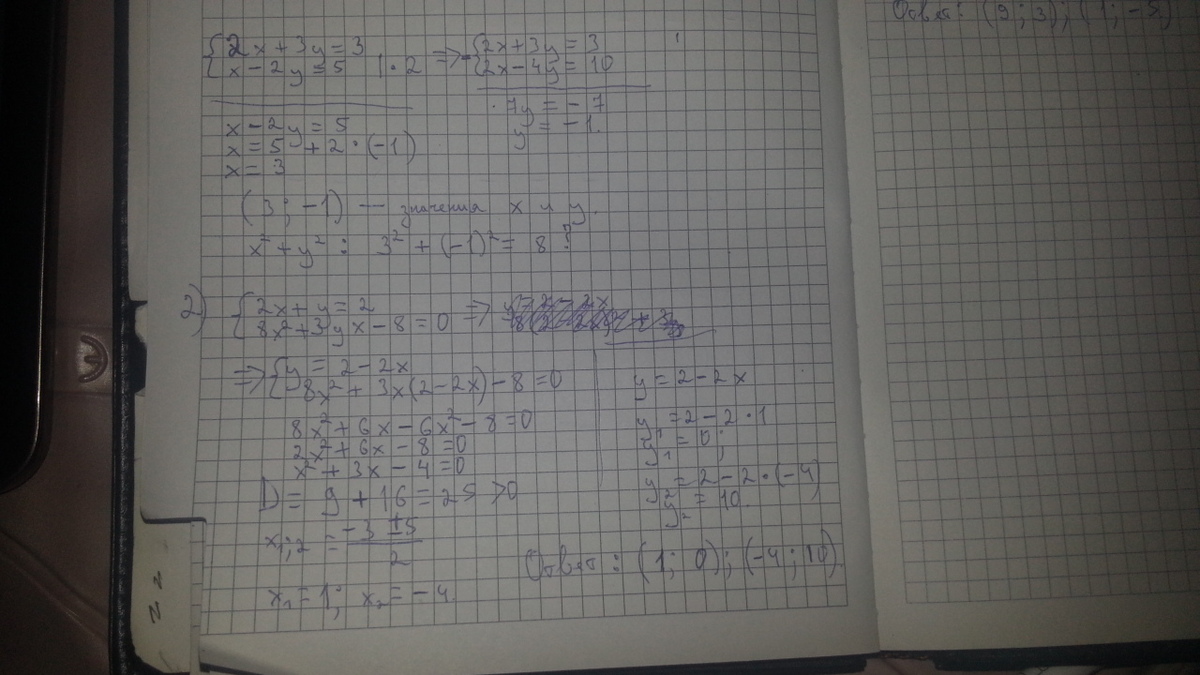 Ответ: (9; 3); (1; -5)
{2x + 3y = 3
{x - 2y = 5 | · 2 => -{2x + 3y = 3
{2x - 4y = 10
7y = -7
y = -1.
x - 2y = 5
x = 5 + 2 · (-1)
x = 3
(3; -1) — значения x и y.
x² + y² : 3² + (-1)² = 8 ?
2) {2x + y = 2
{8x² + 3yx - 8 = 0 =>
=> {y = 2 - 2x
{8x² + 3x(2 - 2x) - 8 = 0
8x² + 6x - 6x² - 8 = 0
2x² + 6x - 8 = 0
x² + 3x - 4 = 0
D = 9 + 16 = 25 > 0
x1;2 = (-3 ± 5) / 2
x₁ = 1; x₂ = -4.
y = 2 - 2x
y₁ = 2 - 2 · 1
y₁ = 0;
y₂ = 2 - 2 · (-4)
y₂ = 10.
Ответ: (1; 0); (-4; 10).